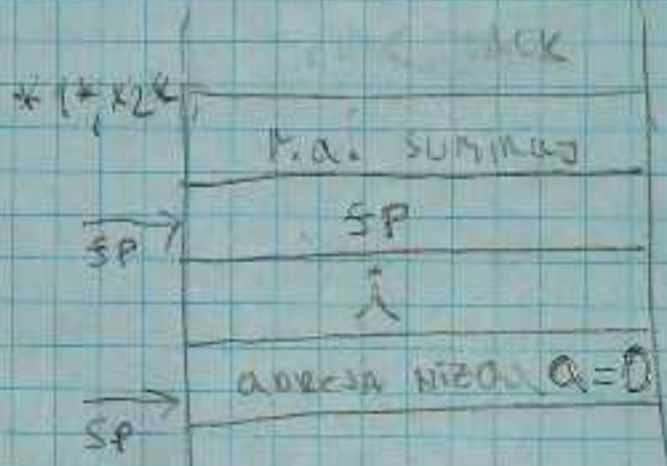 *1*,*2*
r.a. summary
fp
fp
i
adresa niza a=0
sp